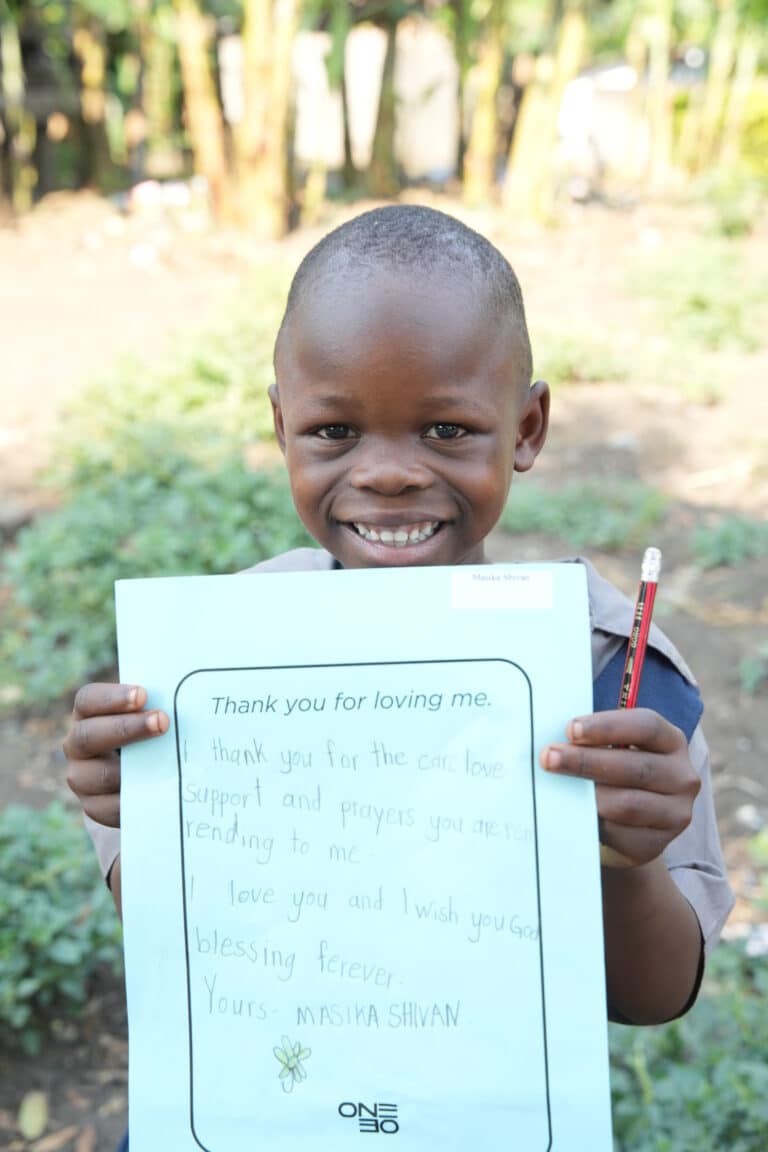 Masika Shivan
Thank you for loving me.
I thank you for the care love
support and prayers you are
rending to me.
I love you and I wish you God
blessing ferever.
Yours- MASIKA SHIVAN
ONE